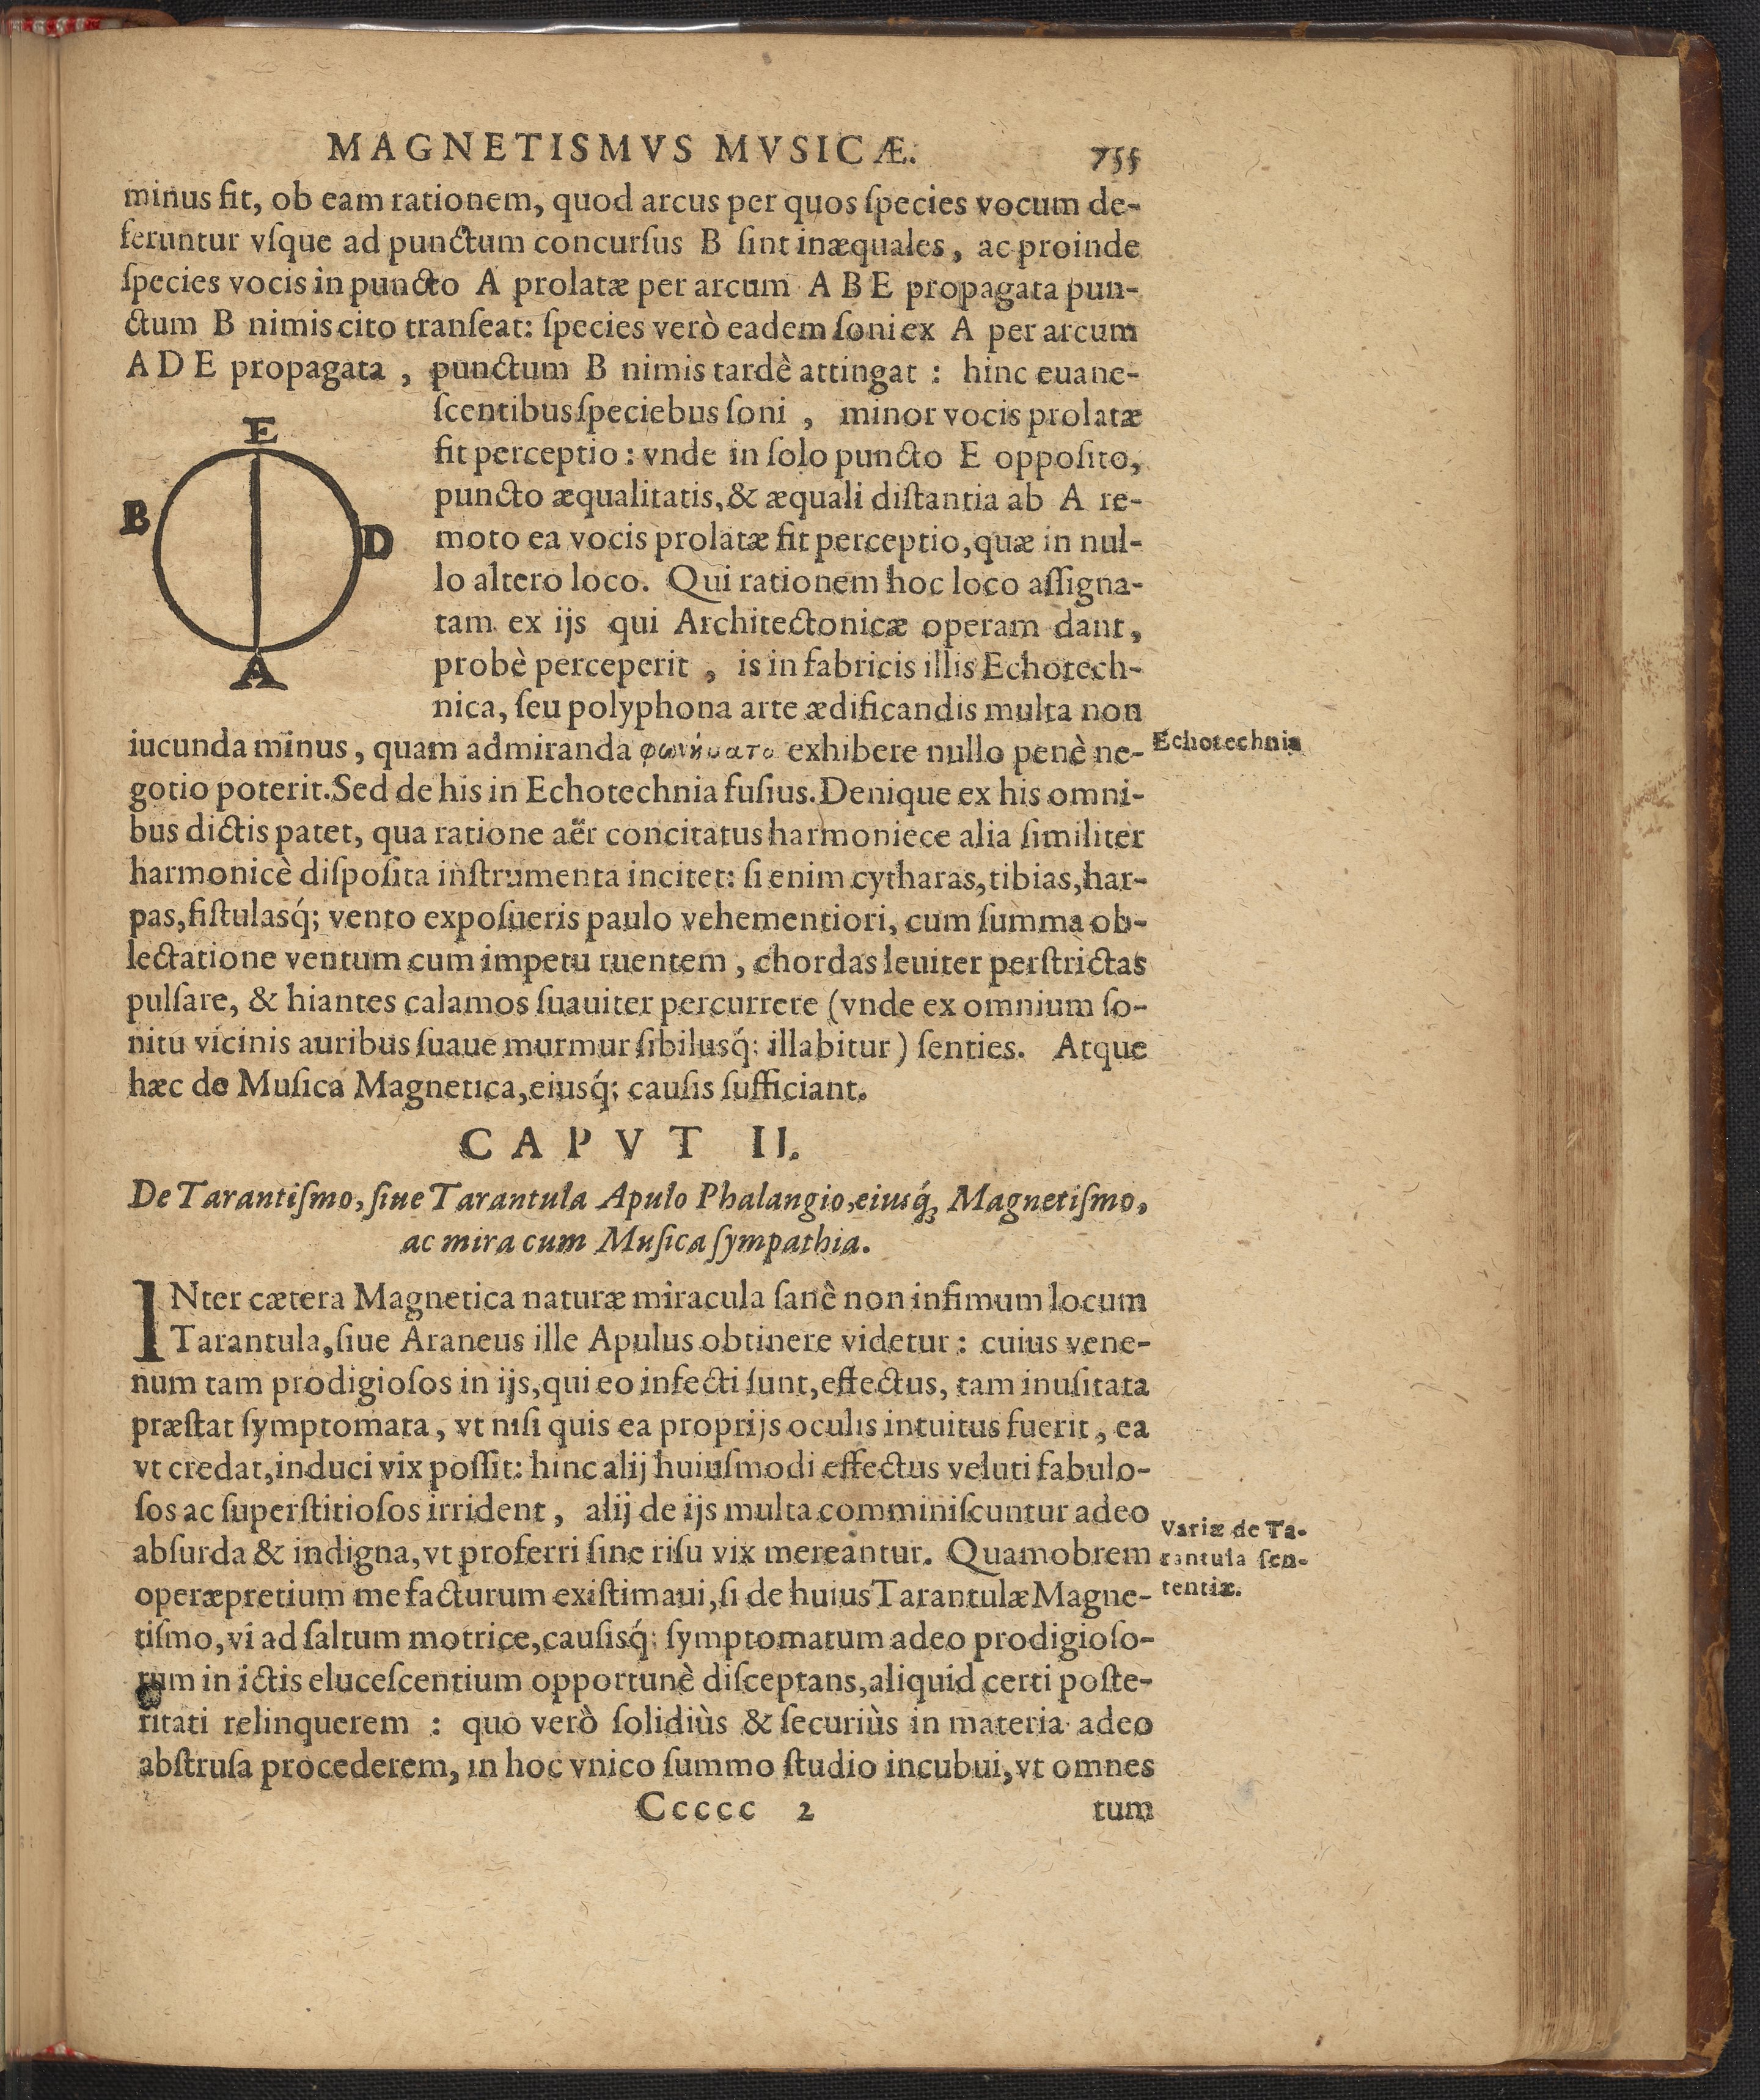 MAGNETISMVS MVSICÆ. 755
minus fit, ob eam rationem, quod arcus per quos ſpecies vocum de-
feruntur vſque ad punctum concurſus B ſint inæquales, ac proinde
ſpecies vocis in puncto A prolatæ per arcum A B E propagata pun-
ctum B nimis cito tranſeat: ſpecies verò eadem ſoni ex A per arcum
A D E propagata, punctum B nimis tardè attingat: hinc euane-
ſcentibus ſpeciebus ſoni, minor vocis prolatæ
fit perceptio: vnde in ſolo puncto E oppoſito,
puncto æqualitatis, & æquali diſtantia ab A re-
moto ea vocis prolatæ fit perceptio, quæ in nul-
lo altero loco. Qui rationem hoc loco aſſigna-
tam ex ijs qui Architectonicæ operam dant,
probè perceperit, is in fabricis illis Echotech-
nica, ſeu polyphona arte ædificandis multa non
E
B
D
A
iucunda minus, quam admiranda exhibere nullo penè ne-
Echotechnia
gotio poterit. Sed de his in Echotechnia fuſius. Denique ex his omni-
bus dictis patet, qua ratione aër concitatus harmoniece alia ſimiliter
harmonicè diſpoſita inſtrumenta incitet: ſi enim cytharas, tibias, har-
pas, fiſtulasq́; vento expoſueris paulo vehementiori, cum ſumma ob-
lectatione ventum cum impetu ruentem, chordas leuiter perſtrictas
pulſare, & hiantes calamos ſuauiter percurrere (vnde ex omnium ſo-
nitu vicinis auribus ſuaue murmur ſibilusq́; illabitur) ſenties. Atque
hæc de Muſica Magnetica, eiusq́; cauſis ſufficiant.
CAPVT II.
De Tarantiſmo, ſiue Tarantula Apulo Phalangio, eiusq́; Magnetiſmo,
ac mira cum Muſica ſympathia.
INter cætera Magnetica naturæ miracula ſanè non infimum locum
Tarantula, ſiue Araneus ille Apulus obtinere videtur: cuius vene-
num tam prodigioſos in ijs, qui eo infecti ſunt, effectus, tam inuſitata
præſtat ſymptomata, vt niſi quis ea proprijs oculis intuitus fuerit, ea
vt credat, induci vix poſſit: hinc alij huiuſmodi effectus veluti fabulo-
ſos ac ſuperſtitioſos irrident, alij de ijs multa comminiſcuntur adeo
abſurda & indigna, vt proferri ſine riſu vix mereantur. Quamobrem
Variæ de Ta-
rantula ſen-
tentiæ.
operæpretium me facturum exiſtimaui, ſi de huius Tarantulæ Magne-
tiſmo, vi ad ſaltum motrice, cauſisq́; ſymptomatum adeo prodigioſo-
rum in ictis eluceſcentium opportunè diſceptans, aliquid certi poſte-
ritati relinquerem: quo verò ſolidiùs & ſecuriùs in materia adeo
abſtruſa procederem, in hoc vnico ſummo ſtudio incubui, vt omnes
Ccccc 2 tum